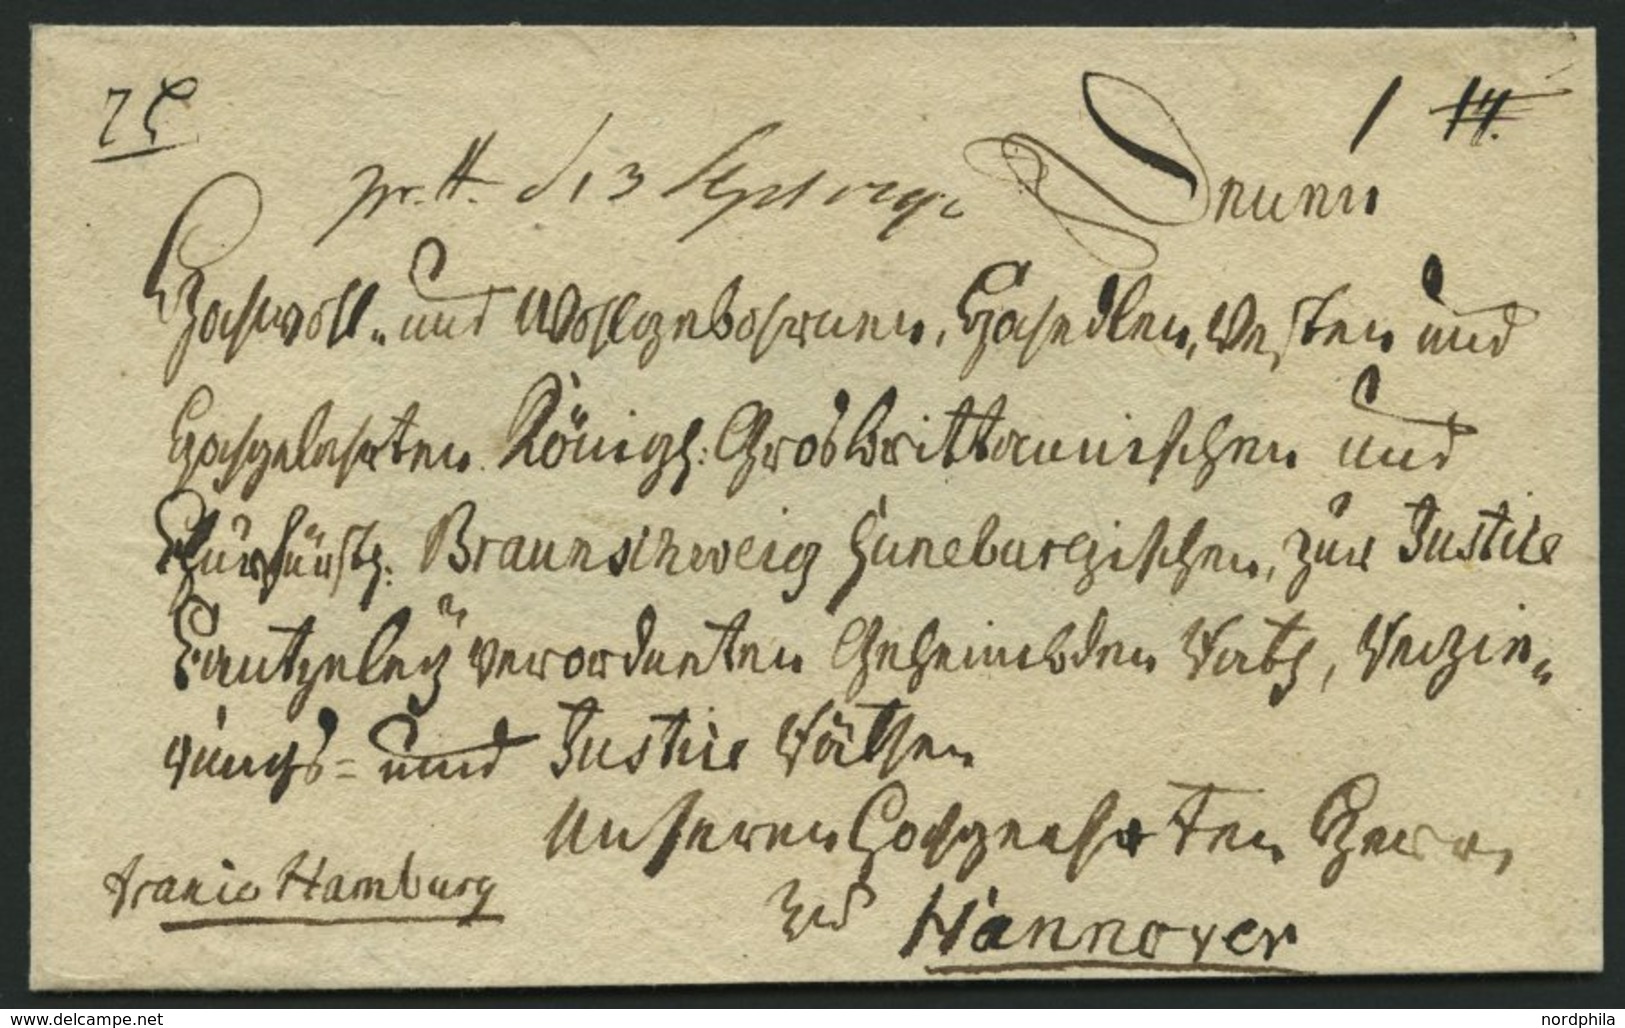 Denen
Hochwohl- und Wohlgebohrnen, HochEdlen, Vesten und
Hochgelahrten Königl: Grosbrittannischen und
Churfürstl: Braunschweig Lüneburgischen, zur Justice
Cantzeley verordneten Geheimbden Rath,
und Justice Räthen
Unseren Hochgeehrten Herrn
zu Hannover
franco Hamburg
www.delcampe.net
nordphila